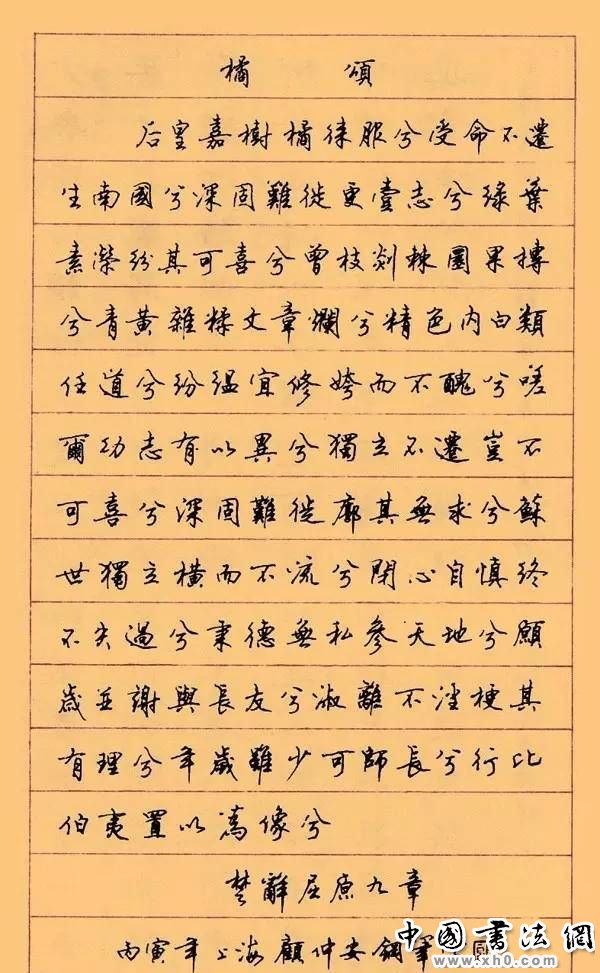 橘頌
后皇嘉樹橘徕服兮受命不遷
生南國兮深固難徙更壹志兮綠葉
素榮紛其可喜兮曾枝剡棘圓果摶
兮青黃雜糅文章爛兮精色内白類
任道兮紛緼宜修姱而不醜兮嗟
爾幼志有以異兮獨立不遷豈不
可喜兮深固難徙廓其無求兮蘇
世獨立橫而不流兮閉心自慎終
不失過兮秉德無私參天地兮願
歲並謝與長友兮淑離不淫梗其
有理兮年歲雖少可師長兮行比
伯夷置以為像兮
楚辭屈原九章
丙寅年上海顧仲安鋼筆
中國書法網
www.xh0.com